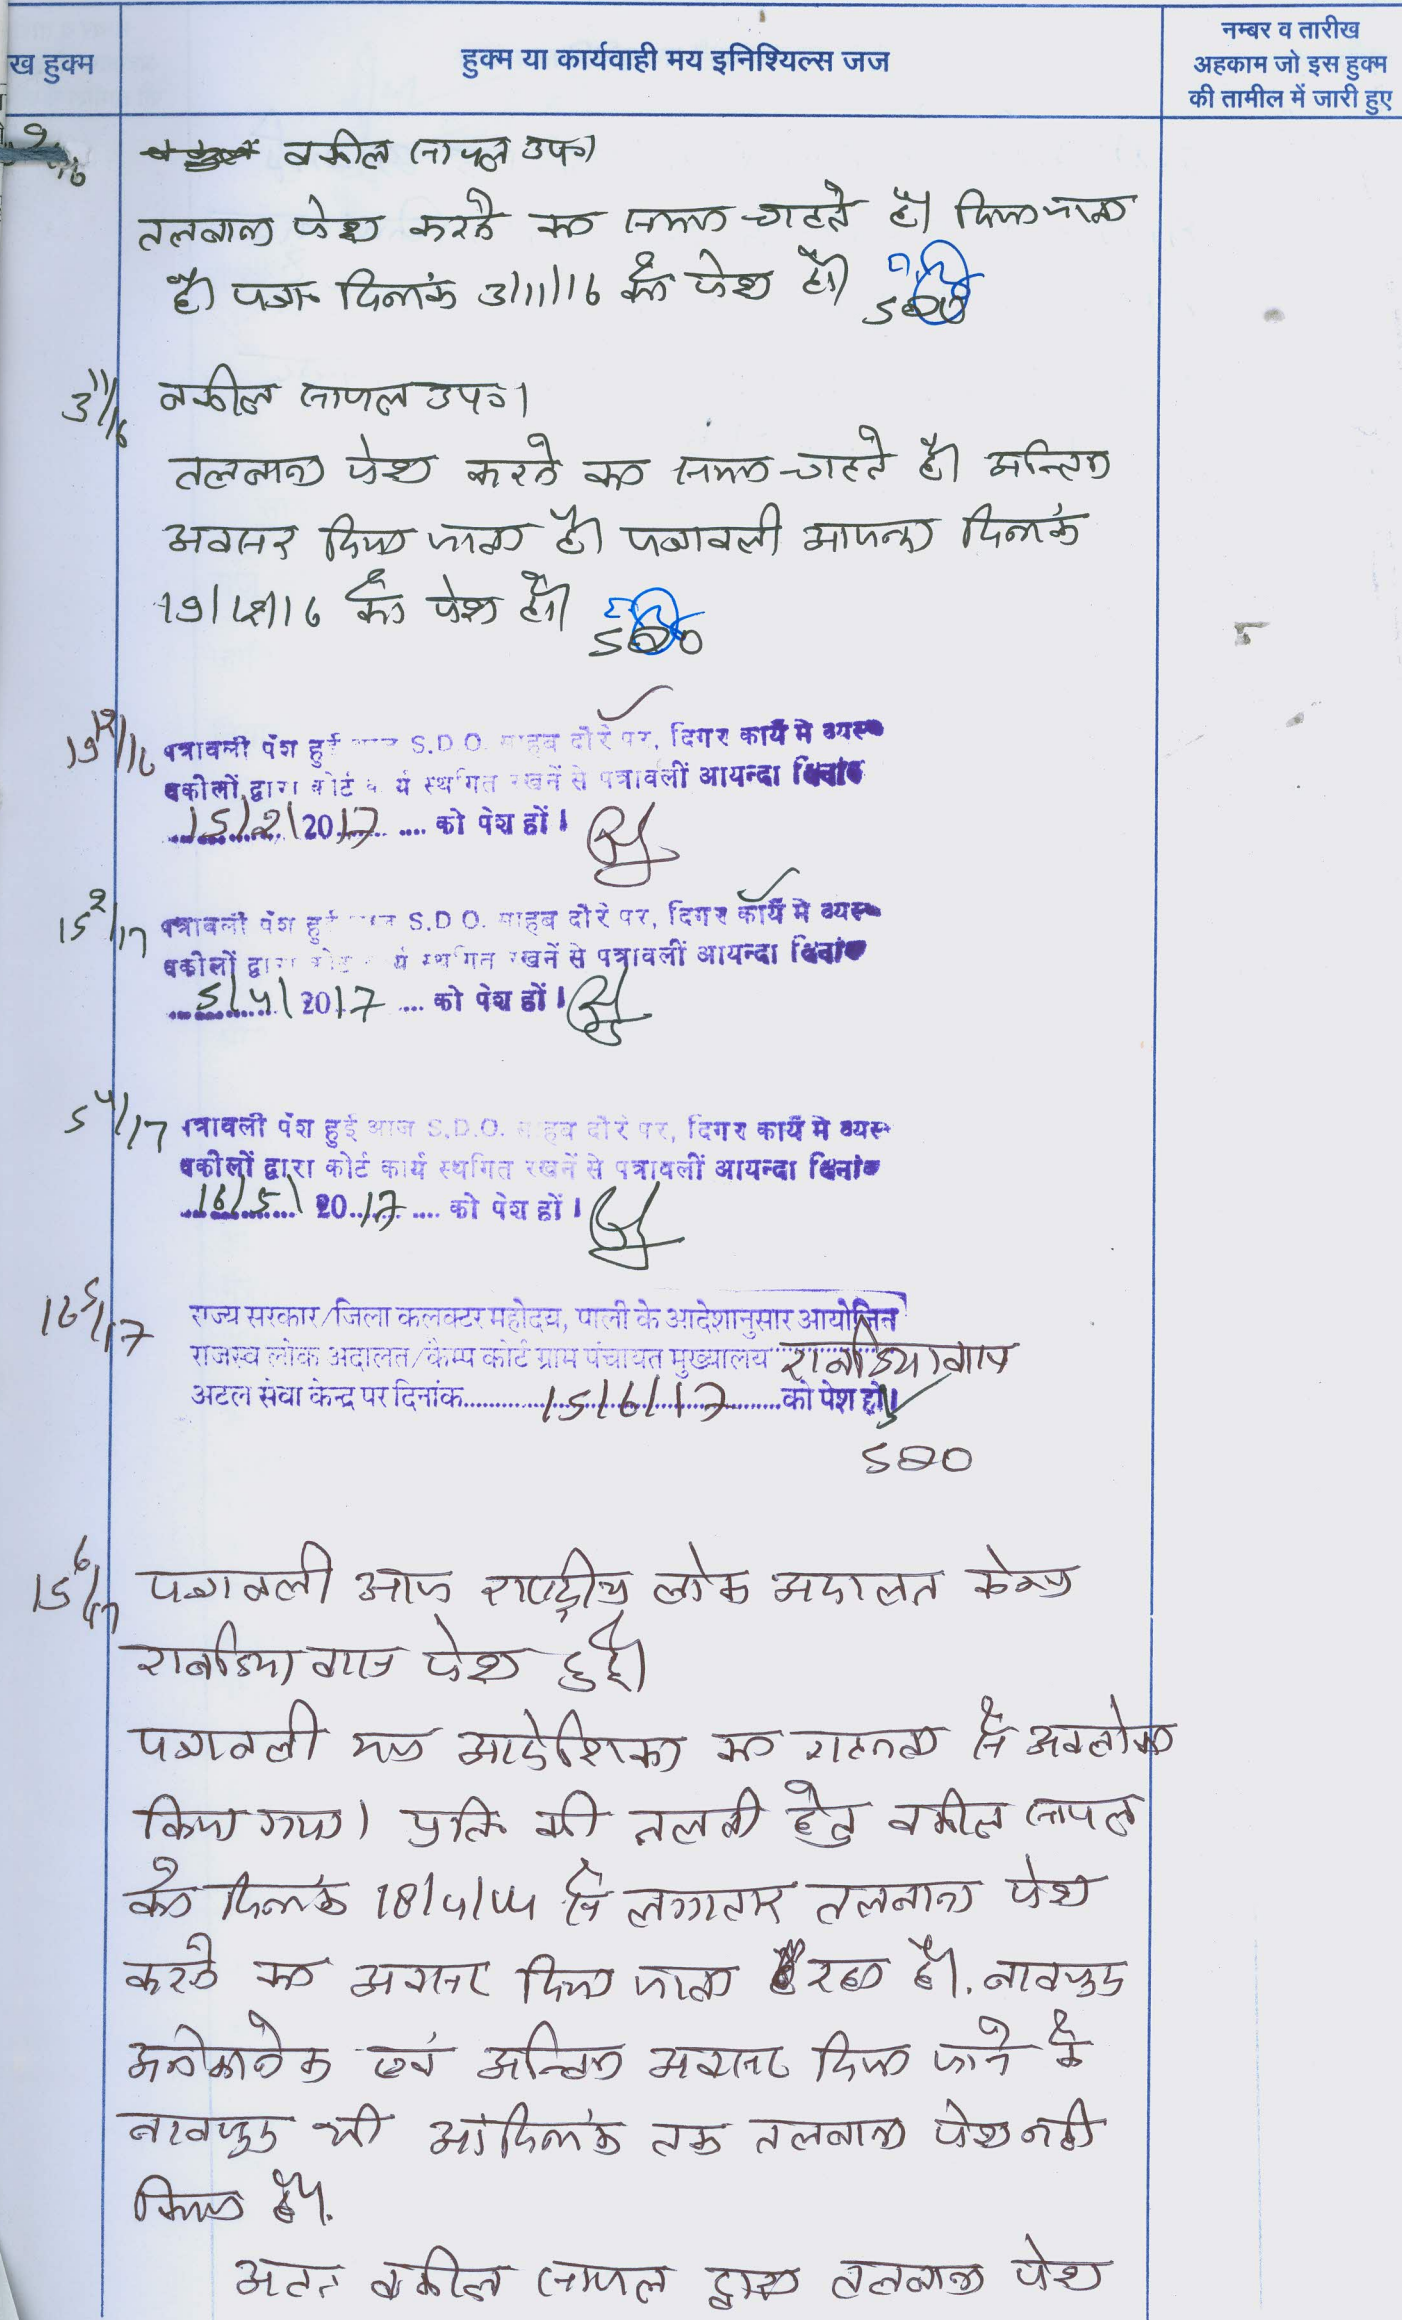 ख हुक्म
हुक्म या कार्यवाही मय इनिश्यिल्स जज
नम्बर व तारीख
अहकाम जो इस हुक्म
की तामील में जारी हुए
वकील सायल उप०
तलबाना पेश करने का समय चाहते है। दिया जाता
है। पत्रा० दिनांक 3/11/16 को पेश हो।
SDO
3/11/16
वकील सायल उप०।
तलबाना पेश करने का समय चाहते है। अन्तिम
अवसर दिया जाता है। पत्रावली आयन्दा दिनांक
19/12/16 को पेश हो।
SDO
19/12/16
पत्रावली पेश हुई आज S.D.O. साहब दौरे पर, दिगर कार्य मे व्यस्त
वकीलों द्वारा कोर्ट कार्य स्थगित रखनें से पत्रावलीं आयन्दा दिनांक
15/2/2017 .... को पेश हों।
15/2/17
पत्रावली पेश हुई आज S.D.O. साहब दौरे पर, दिगर कार्य मे व्यस्त
वकीलों द्वारा कोर्ट कार्य स्थगित रखनें से पत्रावलीं आयन्दा दिनांक
5/4/2017 .... को पेश हों।
5/4/17
पत्रावली पेश हुई आज S.D.O. साहब दौरे पर, दिगर कार्य मे व्यस्त
वकीलों द्वारा कोर्ट कार्य स्थगित रखनें से पत्रावलीं आयन्दा दिनांक
16/5/2017 .... को पेश हों।
16/5/17
राज्य सरकार/जिला कलक्टर महोदय, पाली के आदेशानुसार आयोजित
राजस्व लोक अदालत/कैम्प कोर्ट ग्राम पंचायत मुख्यालय राबडियावास
अटल सेवा केन्द्र पर दिनांक 15/6/17 को पेश हो।
SDO
15/6/17
पत्रावली आज राष्ट्रीय लोक अदालत केम्प
राबडियावास पेश हुई।
पत्रावली मय आदेशिका का गहनता से अवलोकन
किया गया। प्रति की तलबी हेतु वकील सायल
को दिनांक 18/4/14 से लगातार तलबाना पेश
करने का अवसर दिया जाता रहा है। बावजूद
अनेकानेक एवं अन्तिम अवसर दिया जाने के
बावजूद भी आदिनांक तक तलबाना पेश नही
किया है।
अतः वकील सायल द्वारा तलबाना पेश